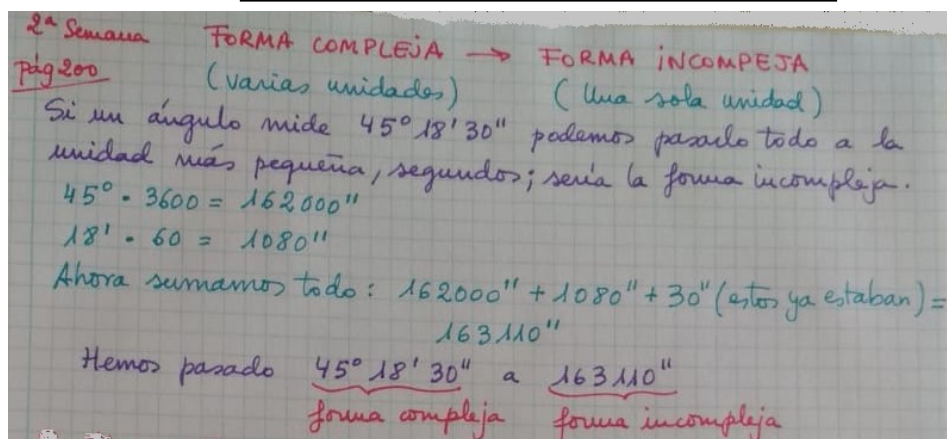 2ª Semana FORMA COMPLEJA → FORMA INCOMPEJA
Pág 200 (varias unidades) (Una sola unidad)
Si un ángulo mide 45° 18' 30" podemos pasarlo todo a la
unidad más pequeña, segundos; sería la forma incompleja.
45° · 3600 = 162000"
18' · 60 = 1080"
Ahora sumamos todo: 162000" + 1080" + 30" (estos ya estaban) =
163110"
Hemos pasado 45° 18' 30" a 163110"
forma compleja forma incompleja